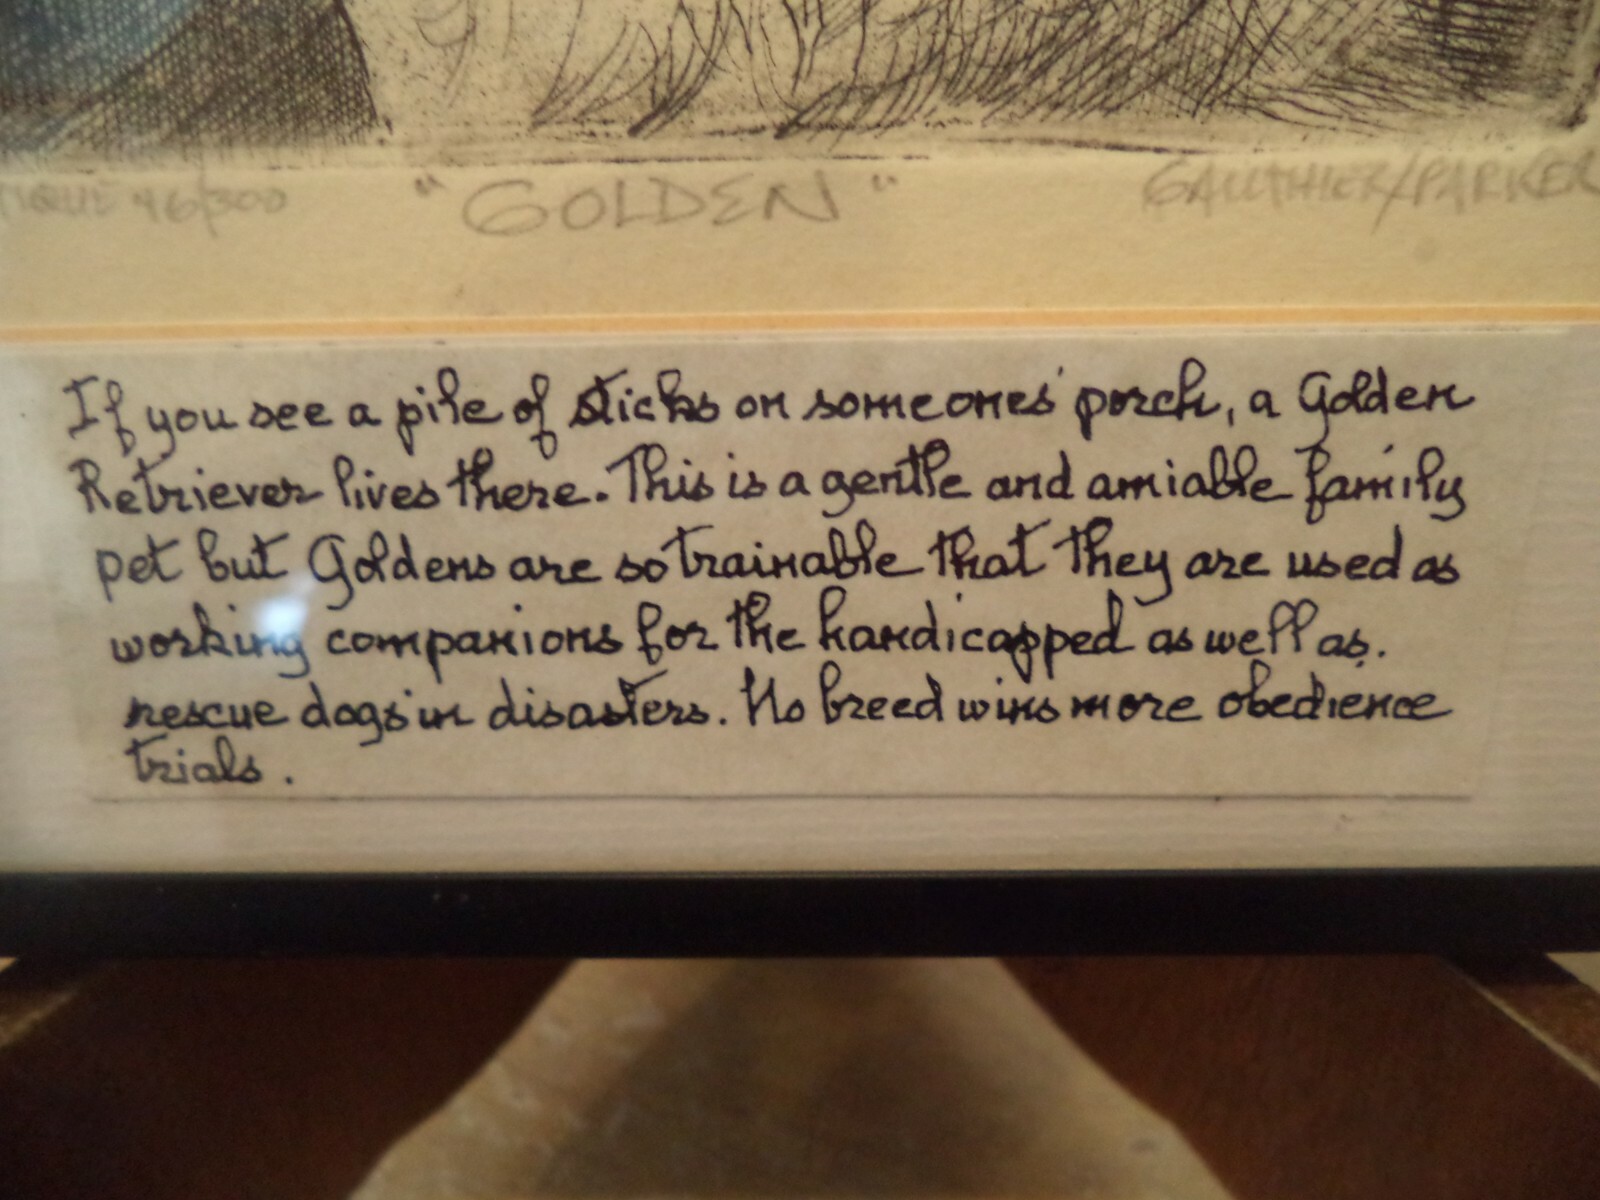 TIQUE 46/300 "GOLDEN" GAUTHIER/PARKER
If you see a pile of sticks on someones' porch, a Golden
Retriever lives there. This is a gentle and amiable family
pet but Goldens are so trainable that they are used as
working companions for the handicapped as well as.
rescue dogs in disasters. No breed wins more obedience
trials.